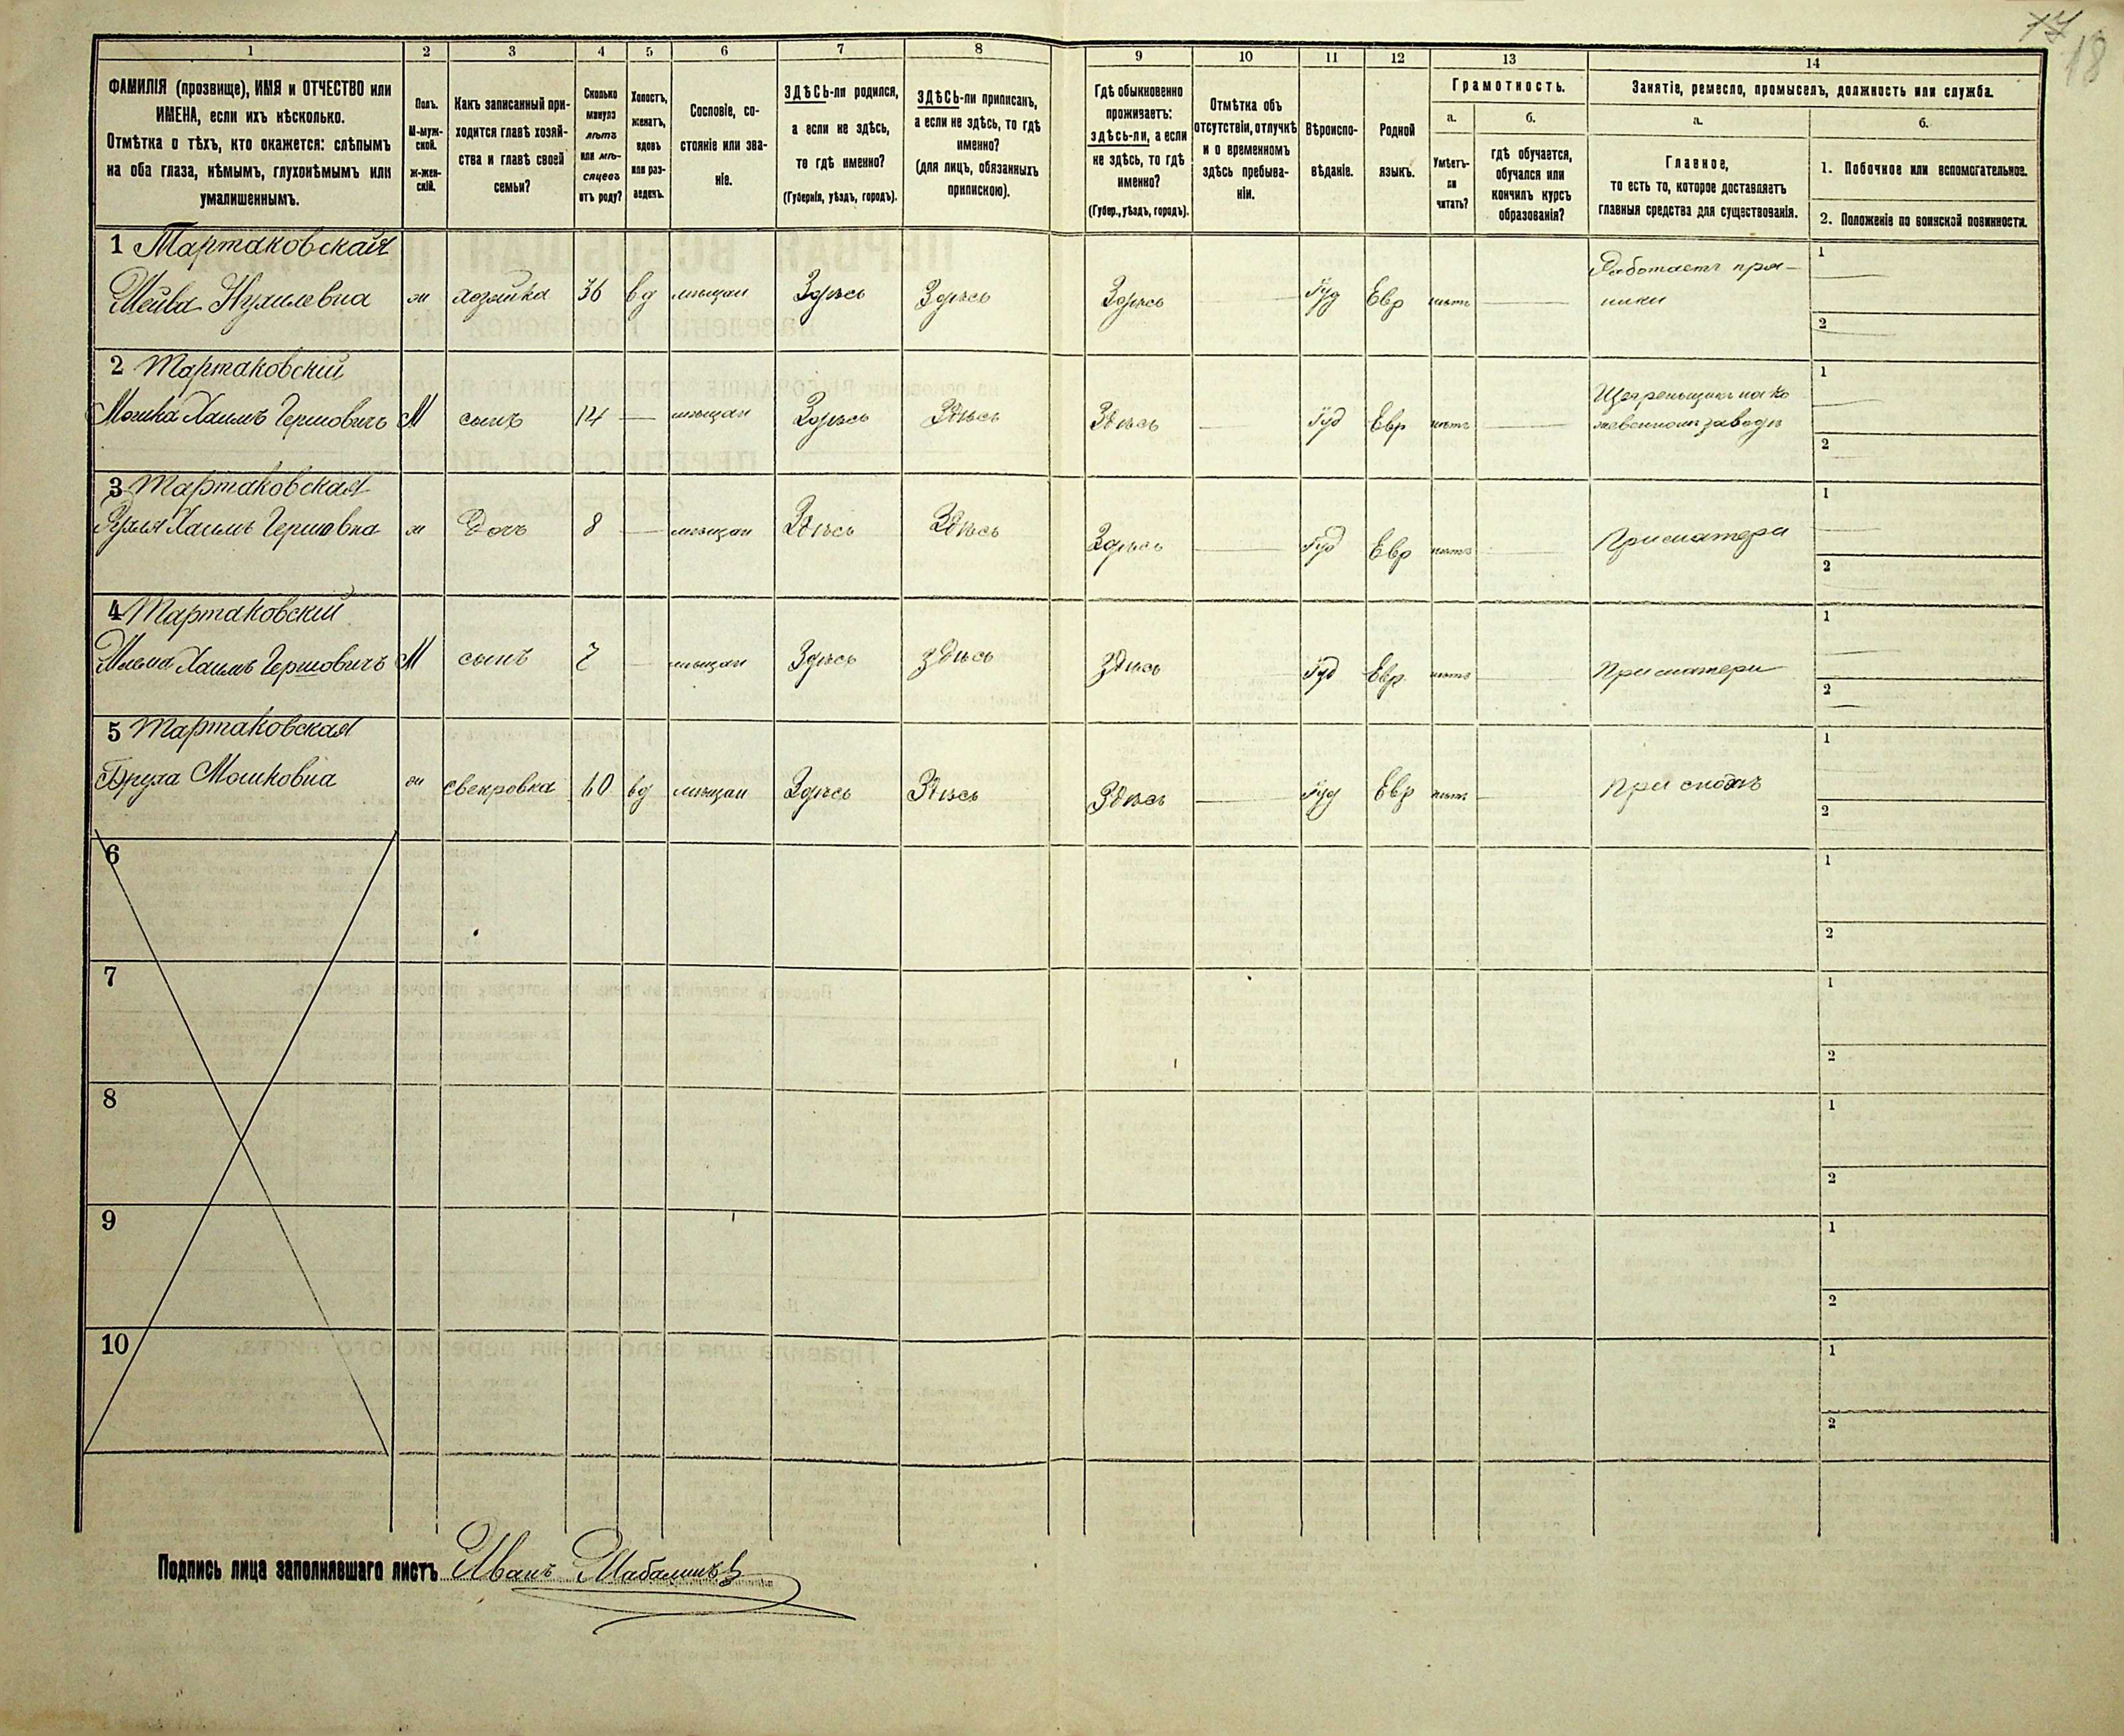 17
18
1
2
3
4
5
6
7
8
9
10
11
12
13
14
ФАМИЛІЯ (прозвище), ИМЯ и ОТЧЕСТВО или
ИМЕНА, если ихъ нѣсколько.
Отмѣтка о тѣхъ, кто окажется: слѣпымъ
на оба глаза, нѣмымъ, глухонѣмымъ или
умалишеннымъ.
Полъ.
М-муж-
ской.
ж-жен-
скій.
Какъ записанный при-
ходится главѣ хозяй-
ства и главѣ своей
семьи?
Сколько
минуло
лѣтъ
или мѣ-
сяцевъ
отъ роду?
Холостъ,
женатъ,
вдовъ
или раз-
веденъ.
Сословіе, со-
стояніе или зва-
ніе.
ЗДѢСЬ-ли родился,
а если не здѣсь,
то гдѣ именно?
(Губернія, уѣздъ, городъ).
ЗДѢСЬ-ли приписанъ,
а если не здѣсь, то гдѣ
именно?
(для лицъ, обязанныхъ
припискою).
Гдѣ обыкновенно
проживаетъ:
здѣсь-ли, а если
не здѣсь, то гдѣ
именно?
(Губер., уѣздъ, городъ).
Отмѣтка объ
отсутствіи, отлучкѣ
и о временномъ
здѣсь пребыва-
ніи.
Вѣроиспо-
вѣданіе.
Родной
языкъ.
Грамотность.
а.
Умѣетъ-
ли
читать?
б.
гдѣ обучается,
обучался или
кончилъ курсъ
образованія?
Занятіе, ремесло, промыселъ, должность или служба.
а.
Главное,
то есть то, которое доставляетъ
главныя средства для существованія.
б.
1. Побочное или вспомогательное.
2. Положеніе по воинской повинности.
1 Тартаковская
Шейва Нухилевна ж хозяйка 36 вд мѣщан Здѣсь Здѣсь Здѣсь Іуд Евр нѣтъ
Работаетъ пря-
ники
1
2
2 Тартаковскій
Мошка Хаимъ Гершовичъ М сынъ 14 — мѣщан Здѣсь Здѣсь Здѣсь — Іуд Евр нѣтъ
на ко
жевенномъ заводѣ
1
2
3 Тартаковская
Хаимъ Гершовна ж дочь 8 — мѣщан Здѣсь Здѣсь Здѣсь — Іуд Евр нѣтъ — При матери
1
2
4 Тартаковскій
Хаимъ Гершовичъ М сынъ 7 — мѣщан Здѣсь здѣсь здѣсь — Іуд Евр нѣтъ — При матери
1
2
5 Тартаковская
Бруха Мошковна ж свекровка 60 вд мѣщан Здѣсь Здѣсь Здѣсь — Іуд Евр нѣтъ — При
1
2
6
1
2
7
1
2
8
1
2
9
1
2
10
1
2
Подпись лица заполнявшаго листъ Иванъ